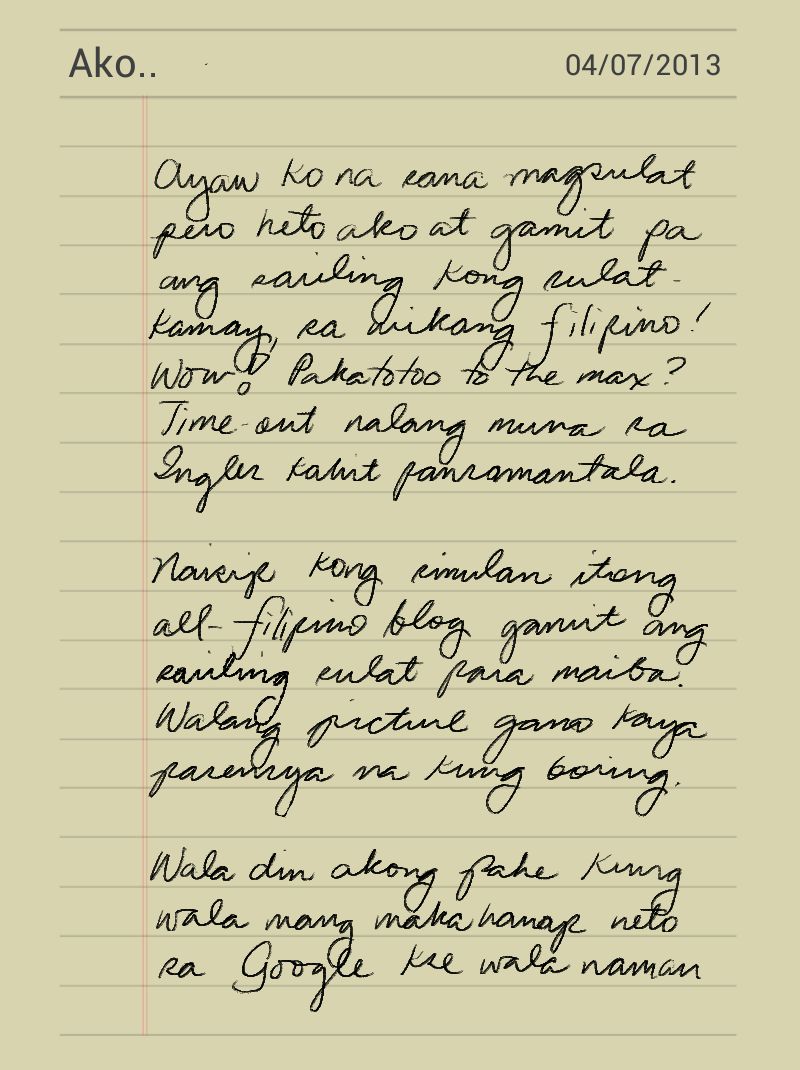 Ako..
04/07/2013
Ayaw ko na sana magsulat
pero heto ako at gamit pa
ang sariling kong sulat-
kamay, sa wikang filipino!
Wow! Pakatotoo to the max?
Time-out nalang muna sa
Ingles kahit pansamantala.
Naisip kong simulan itong
all-filipino blog gamit ang
sariling sulat para maiba.
Walang picture gano kaya
pasensya na kung boring.
Wala din akong pake kung
wala mang makahanap neto
sa Google kse wala naman